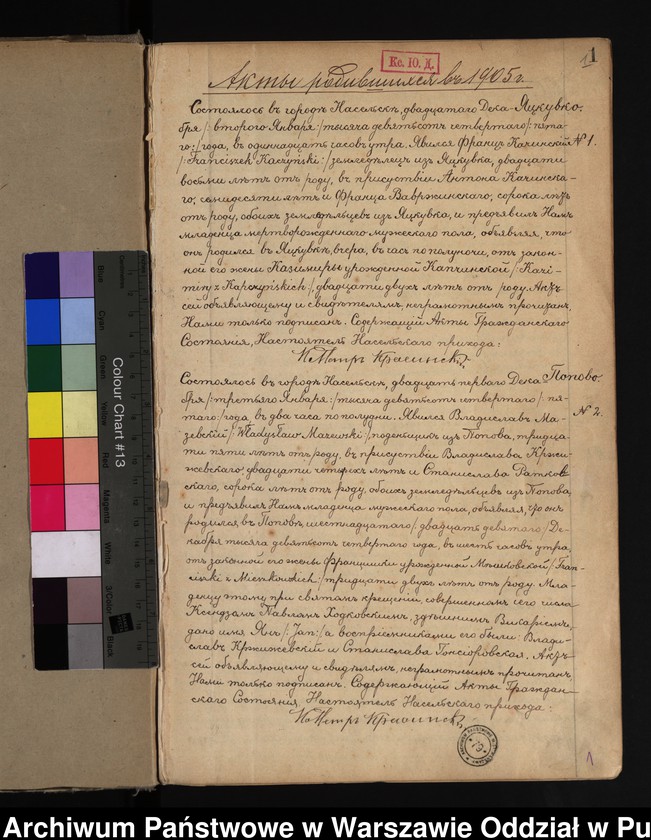 Кс. Ю. Д.
1
Акты родившихся въ 1905 г.
Яцкувко.
№ 1.
Состоялось въ городѣ Насельскѣ, двадцатаго Дека-
бря /: второго Января:/ тысяча девятьсотъ четвертаго /: пята-
го:/ года, въ одиннадцать часовъ утра. Явился Францъ Качинскій
/: Franciszek Kaczyński:/ земледѣлецъ изъ Яцкувка, двадцати
восьми лѣтъ отъ роду, въ присутствіи Антона Качинска-
го, семидесяти лѣтъ и Франца Вавржинскаго, сорока лѣтъ
отъ роду, обоихъ земледѣльцевъ изъ Яцкувка, и предъявилъ Намъ
младенца мертворожденнаго мужескаго пола, объявляя, что
онъ родился въ Яцкувкѣ, вчера, въ часъ по полуночи, отъ закон-
ной его жены Казимиры урожденной /: Kazi-
miry z двадцати двухъ лѣтъ отъ роду. Актъ
сей объявляющему и свидѣтелямъ, неграмотнымъ прочитанъ,
Нами только подписанъ. Содержащій Акты Гражданскаго
Состоянія, Настоятель Насельскаго прихода:
Кс Петръ
Попово.
№ 2.
Состоялось въ городѣ Насельскѣ, двадцать перваго Дека
бря /: третьяго Января:/ тысяча девятьсотъ четвертаго /: пя-
таго:/ года, въ два часа по полудни. Явился Владиславъ Ма-
зевскій /: Władysław Mazewski:/ поденщикъ изъ Попова, тридца-
ти пяти лѣтъ отъ роду, въ присутствіи Владислава Кржи-
жевскаго, двадцати четырехъ лѣтъ и Станислава Ратков
скаго, сорока лѣтъ отъ роду, обоихъ земледѣльцевъ изъ Попова,
и предъявилъ Намъ младенца мужескаго пола, объявляя, что онъ
родился въ Поповѣ, шестнадцатаго /: двадцать девятаго:/ Де-
кабря тысяча девятьсотъ четвертаго года, въ шесть часовъ утра,
отъ законной его жены Францишки урожденной /: Fran-
ciszki z тридцати двухъ лѣтъ отъ роду. Мла-
денцу этому при святомъ крещеніи, совершенномъ сего числа
Ксендзомъ Павломъ Ходковскимъ, здѣшнимъ Викаріемъ,
дано имя Янъ /: Jan:/ а воспріемниками его были: Влади-
славъ Кржижевскій и Станислава Гонсіоровская. Актъ
сей объявляющему и свидѣтелямъ, неграмотнымъ прочитанъ,
Нами только подписанъ. Содержащій Акты Граждан-
скаго Состоянія Настоятель Насельскаго прихода:
Кс Петръ
1
Colour Chart #13
Blue
Cyan
Green
Yellow
Red
Magenta
White
3/Color
Black
Archiwum Państwowe w Warszawie Oddział w Pu